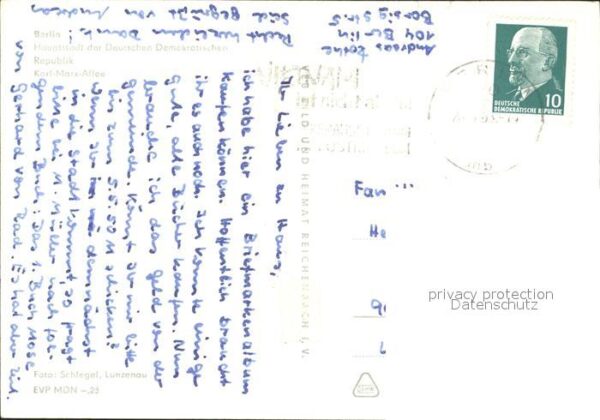 Berlin
Hauptstadt der Deutschen Demokratischen
Republik
Karl-Marx-Allee
Ihr Lieben zu Haus,
ich habe hier ein Briefmarkenalbum
kaufen können. Hoffentlich braucht
ihr es auch noch. Ich konnte einige
gute, alte Bücher kaufen. Nun
ich das Geld von der
Gemeinde. Könnt Ihr mir bitte
bis zum 5.6. 50 M schicken?
Wenn Ihr demnächst
in die Stadt kommt, so fragt
bitte bei M. Müller nach fol-
gendem Buch: Das 1. Buch Mose
von Gerhard von Rad. Es hat aber Zeit.
Recht herzlichen Dank!
Seid gegrüßt von Andreas
Andreas
104 Berlin
Borsigstr. 5
Foto: Schlegel, Lunzenau
EVP MDN –,25
BILD UND HEIMAT REICHENBACH I. V.
10
DEUTSCHE
DEMOKRATISCHE REPUBLIK
Fam
He
privacy protection
Datenschutz